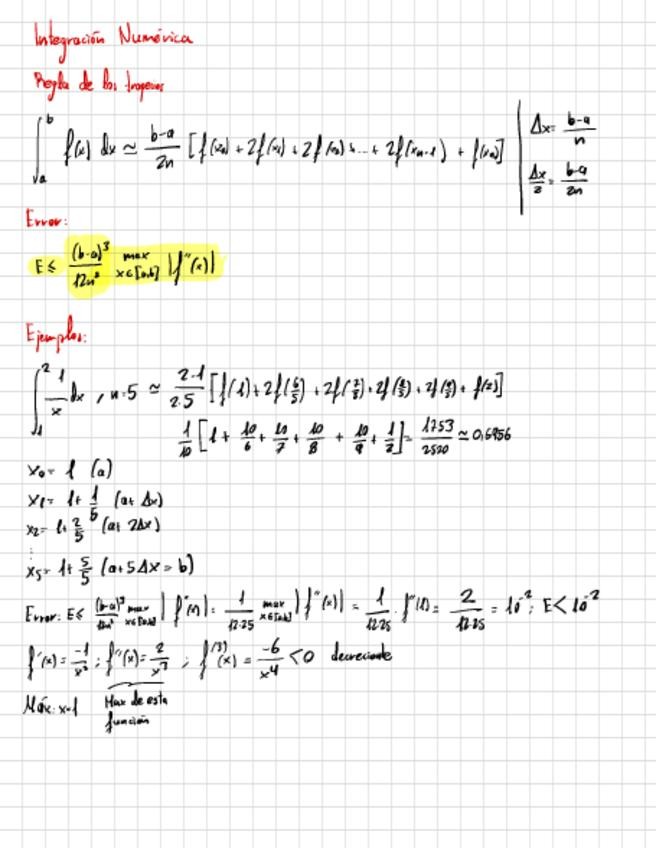 Integración Numérica
Regla de los trapecios
∫_a^b f(x) dx ≃ (b-a)/(2n) [f(x₀) + 2f(x₁) + 2f(x₂) + ... + 2f(xₙ₋₁) + f(xₙ)] | Δx = (b-a)/n
Δx/2 = (b-a)/(2n)
Error:
E ≤ (b-a)³/(12n²) max x∈[a,b] |f''(x)|
Ejemplos:
∫_1^2 1/x dx , n=5 ≃ (2-1)/(2·5) [f(1) + 2f(6/5) + 2f(7/5) + 2f(8/5) + 2f(9/5) + f(2)]
1/10 [1 + 10/6 + 10/7 + 10/8 + 10/9 + 1/2] = 1753/2520 ≃ 0,6956
x₀ = 1 (a)
x₁ = 1 + 1/5 (a + Δx)
x₂ = 1 + 2/5 (a + 2Δx)
⋮
x₅ = 1 + 5/5 (a + 5Δx = b)
Error: E ≤ (b-a)³/(12n²) max x∈[a,b] |f''(x)| = 1/(12·25) max x∈[a,b] |f''(x)| = 1/(12·25) · f''(1) = 2/(12·25) = 10⁻² ; E < 10⁻²
f'(x) = -1/x² ; f''(x) = 2/x³ ; f⁽³⁾(x) = -6/x⁴ < 0 decreciente
Máx: x=1 Max de esta
función